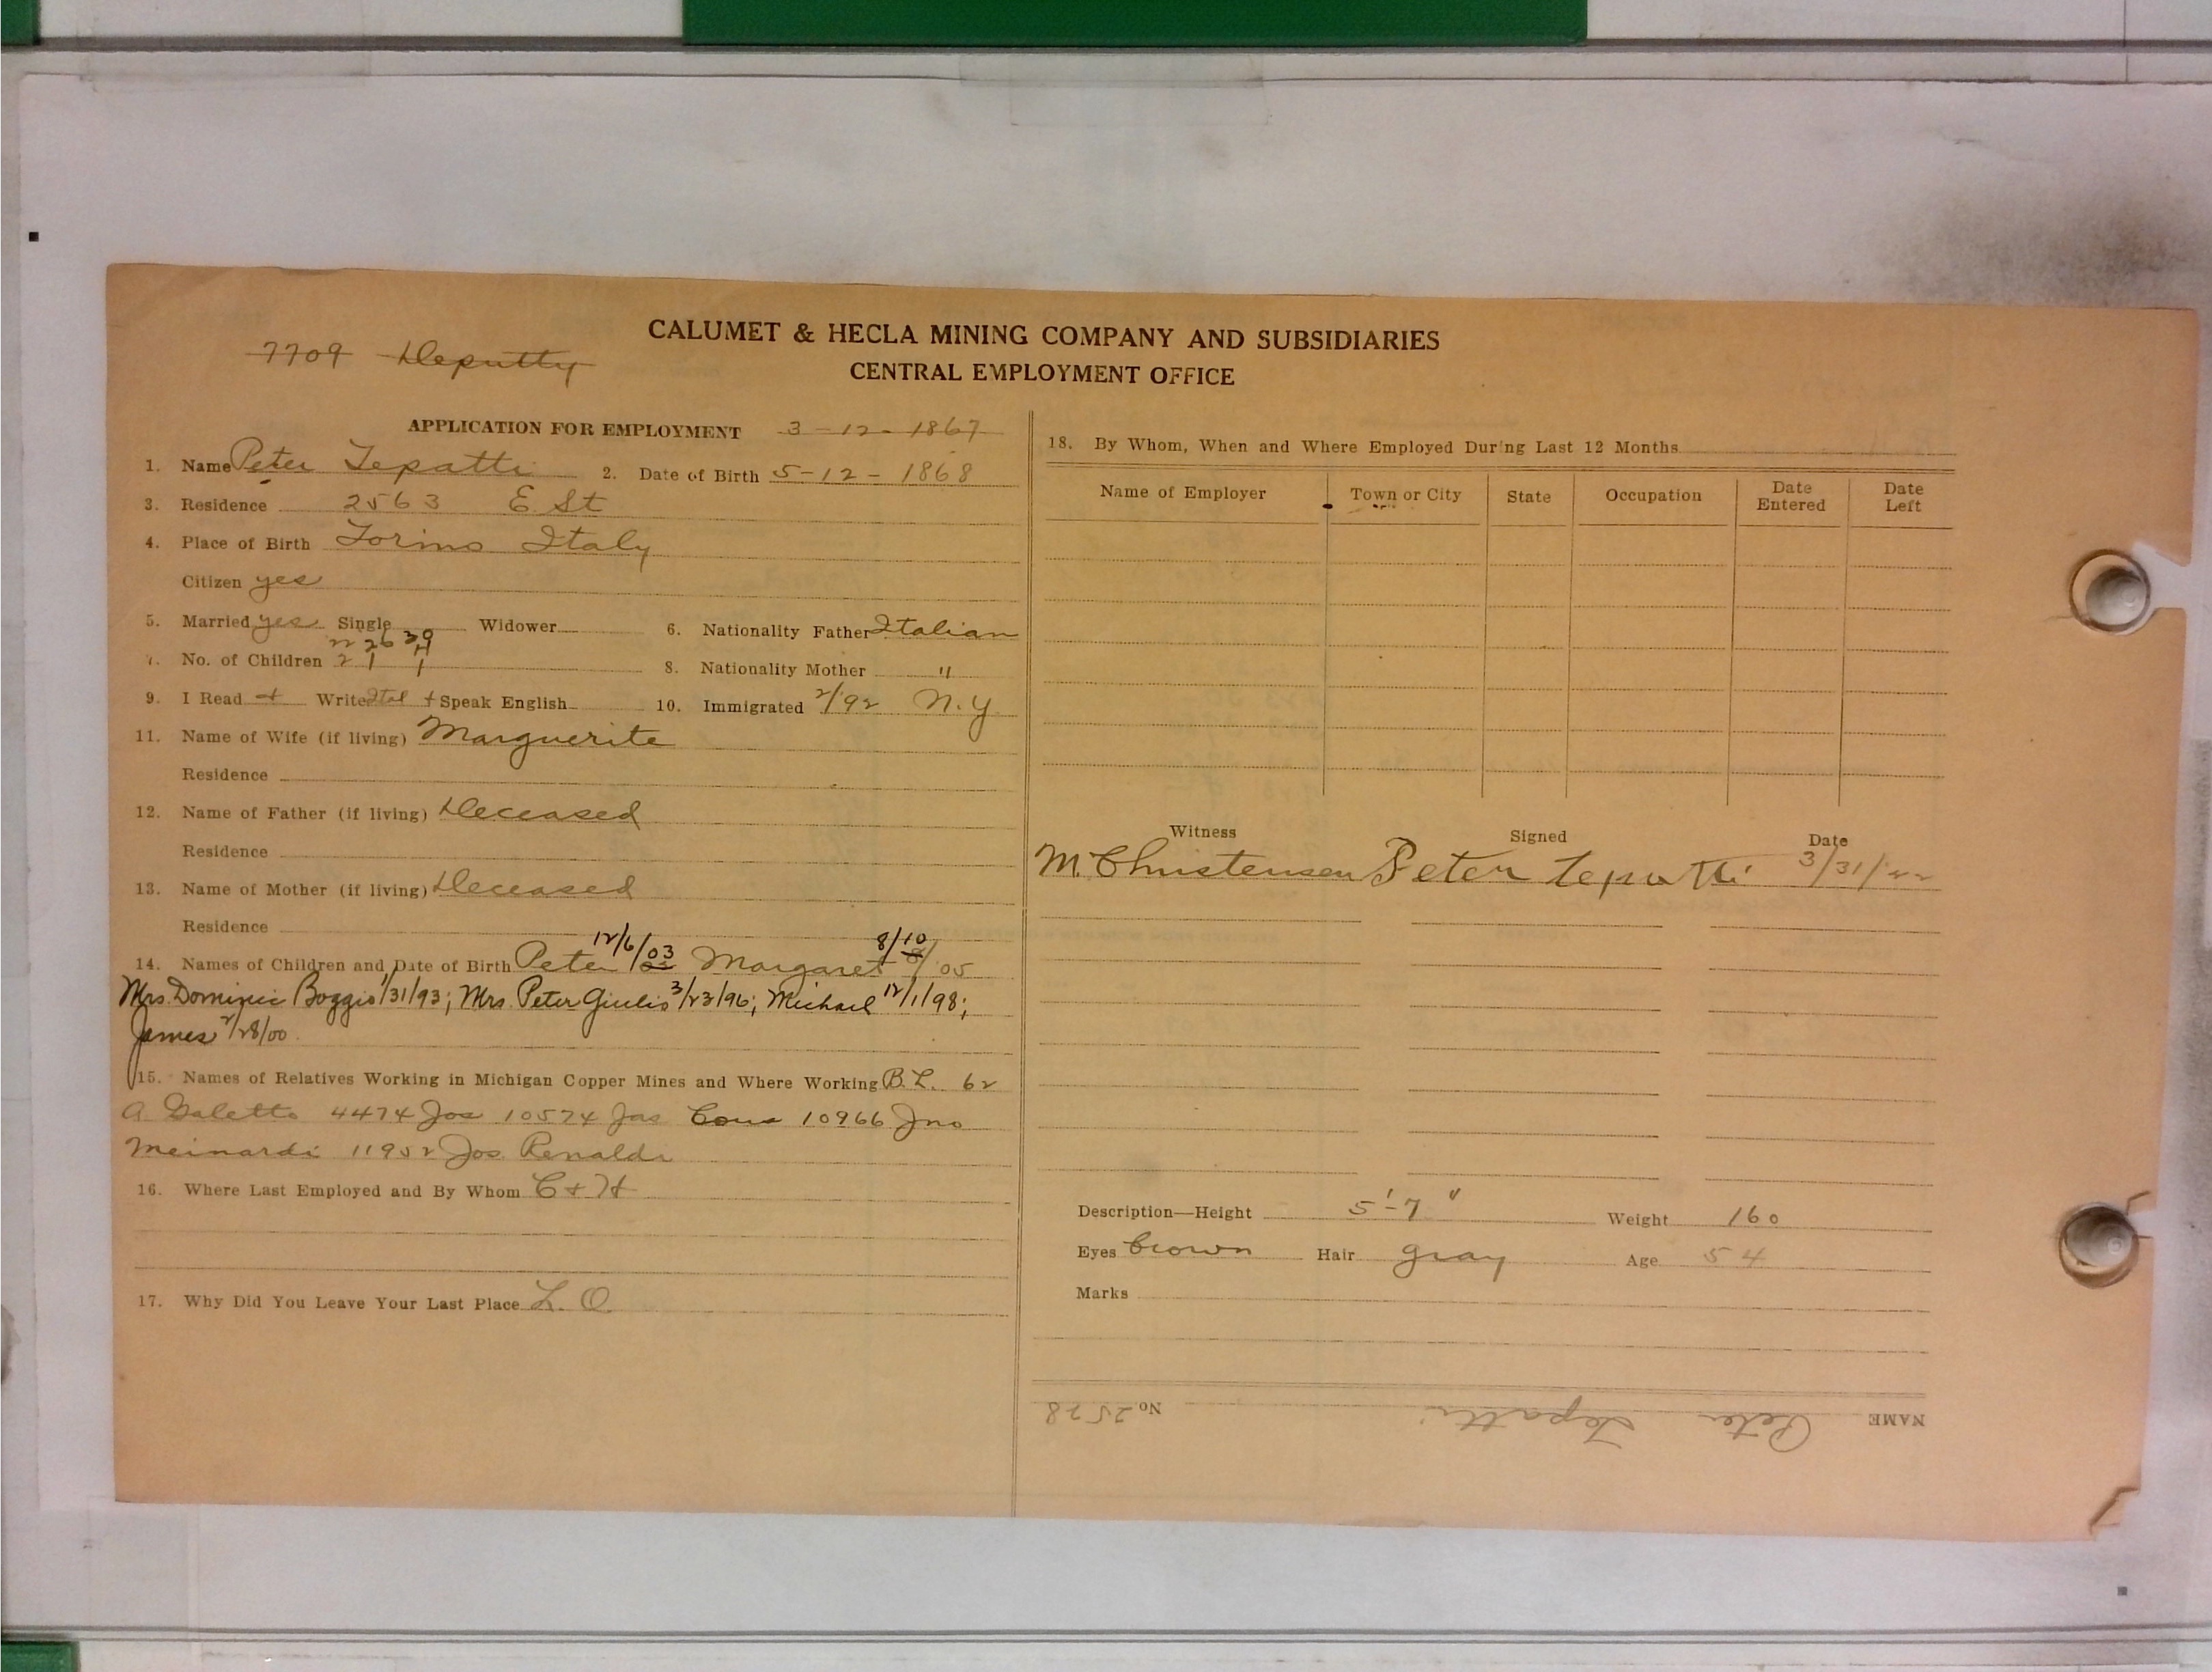 CALUMET & HECLA MINING COMPANY AND SUBSIDIARIES
7709 Deputty
CENTRAL EMPLOYMENT OFFICE
APPLICATION FOR EMPLOYMENT 3-12-1867
1. Name Peter Tepatti 2. Date of Birth 5-12-1868
3. Residence 2563 E St
4. Place of Birth Torino Italy
Citizen yes
5. Married yes Single Widower 6. Nationality Father Italian
7. No. of Children 2 1 1 8. Nationality Mother "
9. I Read + Write Ital + Speak English 10. Immigrated 2/92 N.Y.
11. Name of Wife (if living) Marguerite
Residence
12. Name of Father (if living) Deceased
Residence
13. Name of Mother (if living) Deceased
Residence
14. Names of Children and Date of Birth Peter 12/6/03 Margaret 8/10/05
Mrs. Dominic Boggio 1/31/93; Mrs. Peter Giulio 3/23/96; Michael 12/1/98;
James 2/28/00.
15. Names of Relatives Working in Michigan Copper Mines and Where Working B.L. 62
A. Galetto 4474 Jos 10574 Jas 10966 Jno
Meinardi 11952 Jos. Renaldi
16. Where Last Employed and By Whom C + H
17. Why Did You Leave Your Last Place L. O.
18. By Whom, When and Where Employed During Last 12 Months
Name of Employer Town or City State Occupation Date Entered Date Left
Witness Signed Date
M. Christensen Peter Tepatti 3/31/22
Description—Height 5'-7" Weight 160
Eyes brown Hair gray Age 54
Marks
NAME Peter Tepatti No. 2528